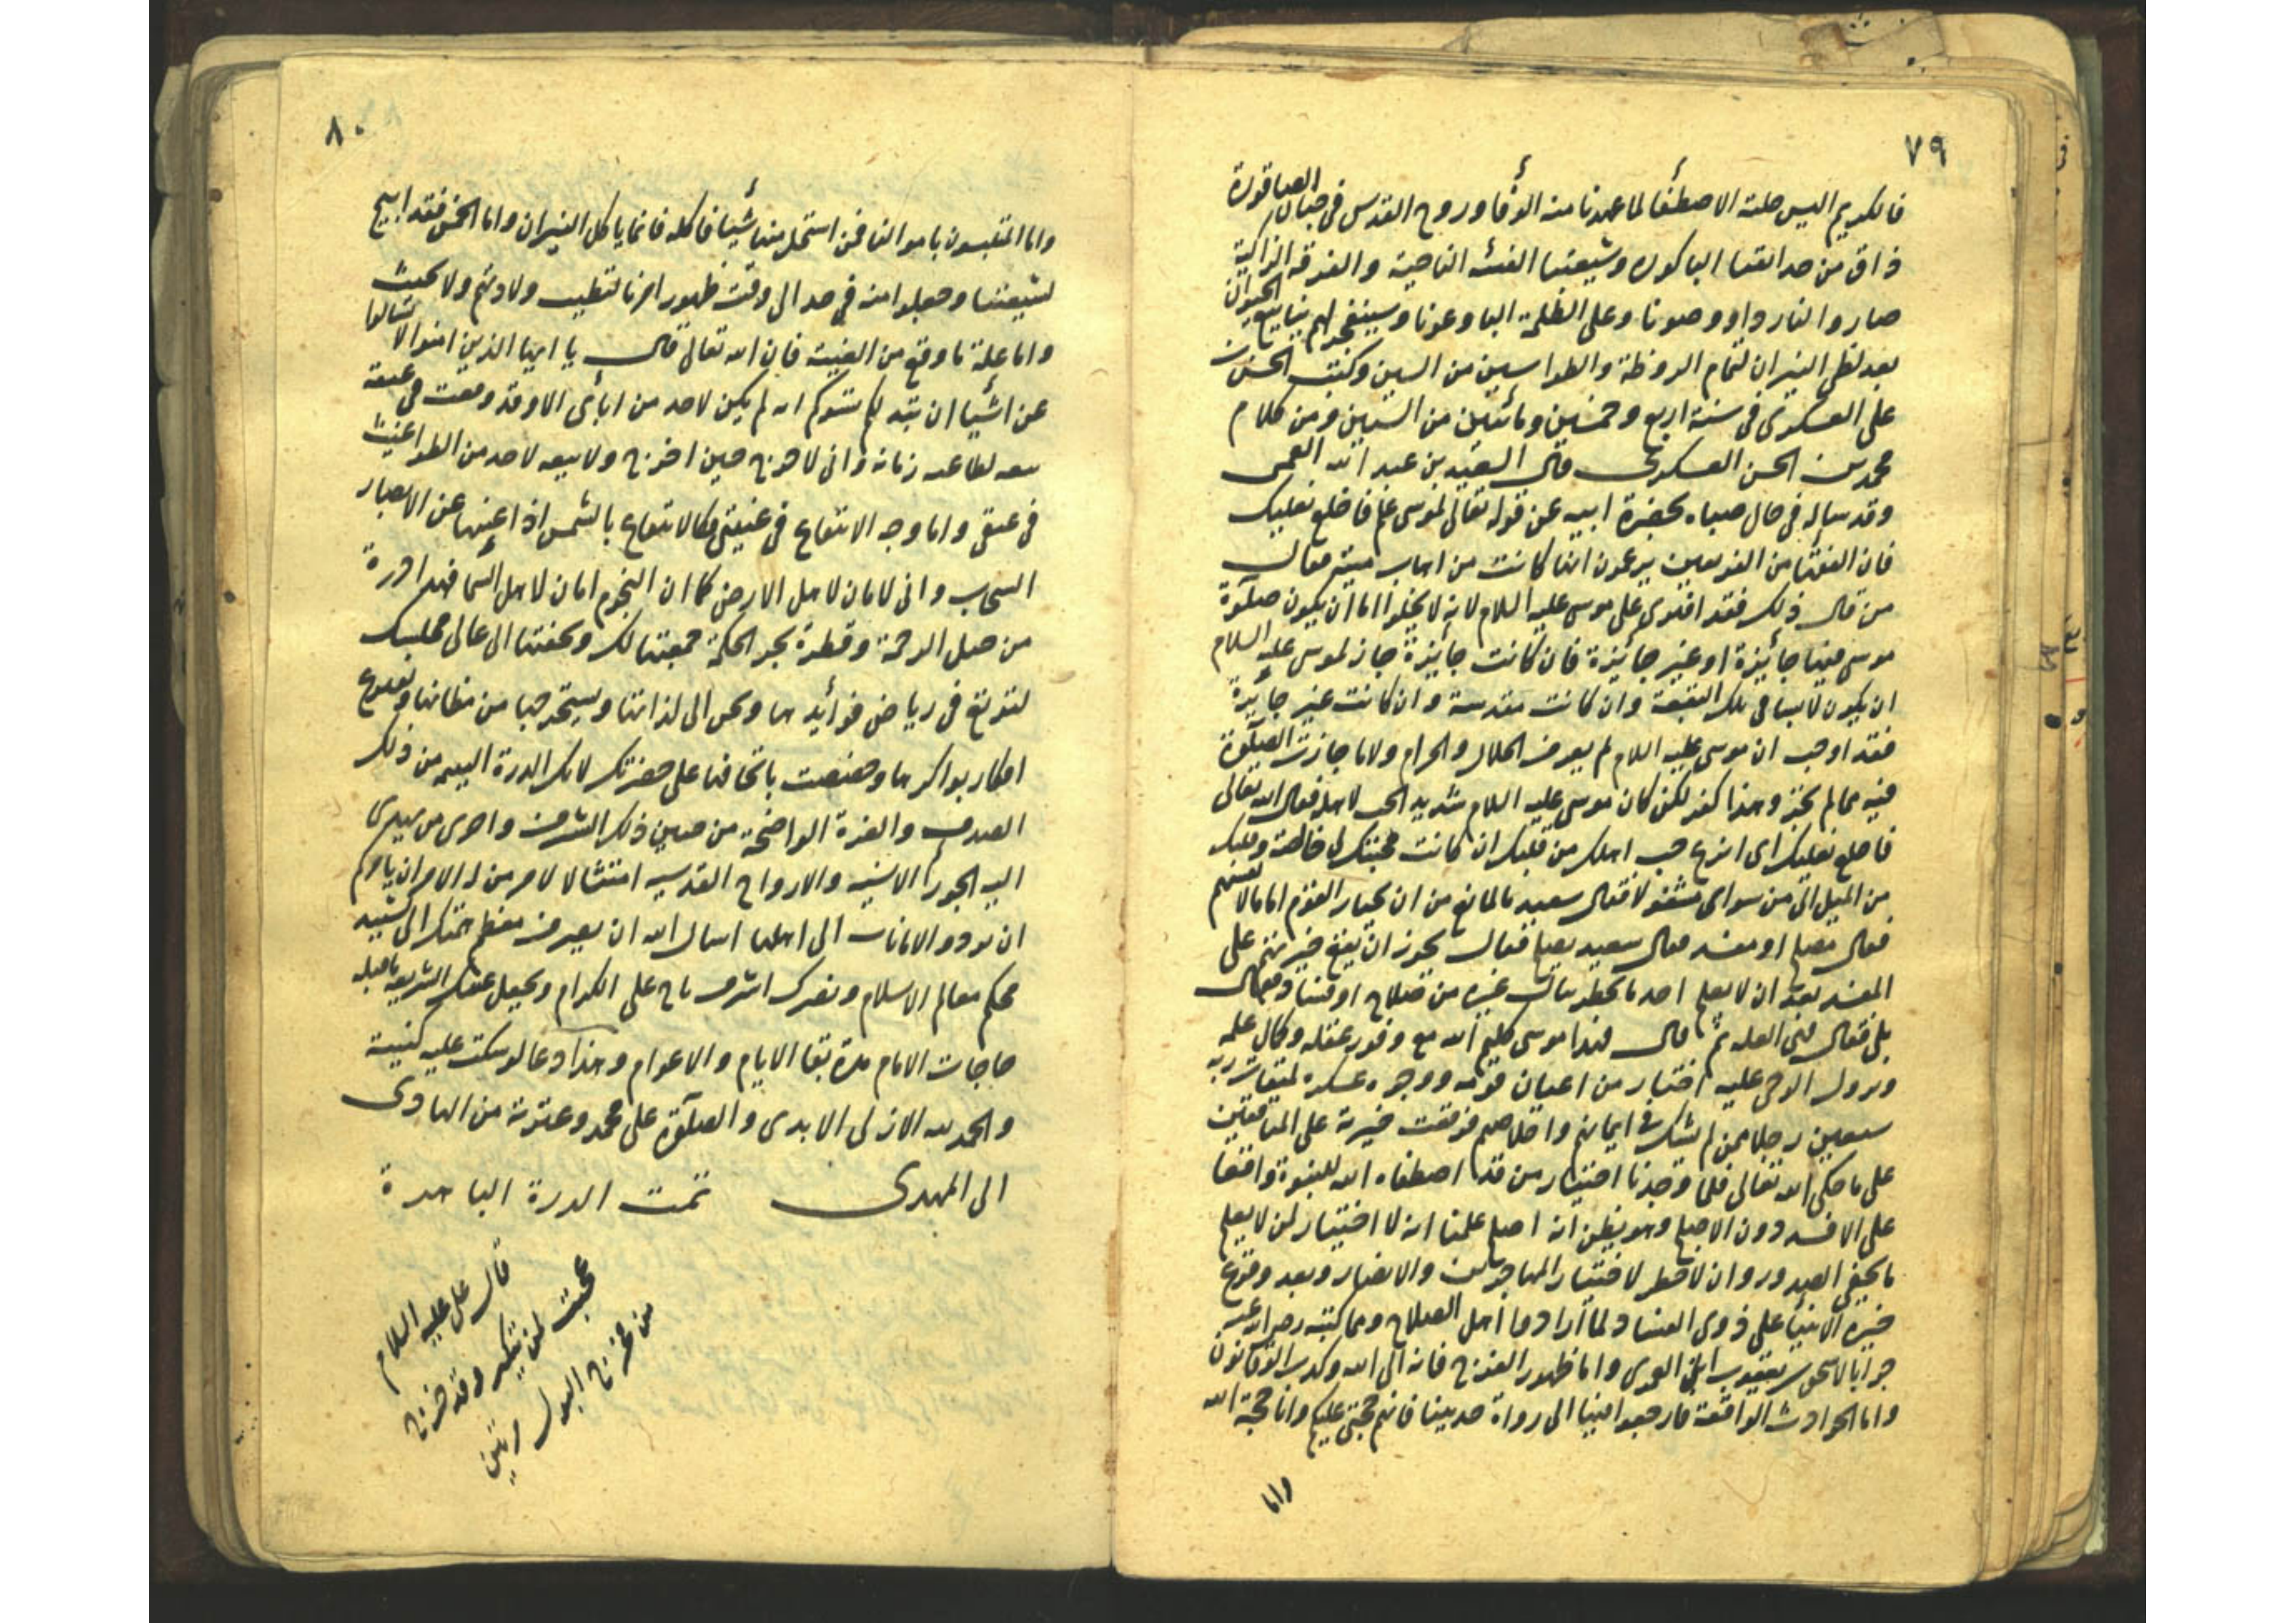 ٧٩
فالكريم البس حلة الاصطفأ لما عهدنا منه الوفأ وروح القدس في جنان الصاقورة
ذاق من حدائقنا الباكوره وشيعتنا الفئه الناجية والفرقه الزاكية
صاروا لنا ردا وصونا وعلى الظلمة البا وعونا وسينفجر لهم ينابيع الحيوان
بعد لظى النيران لتمام الروظة والطواسين من السنين وكتب الحسن بن
علي العسكرى في سنة اربع وخمسين ومائتين من السنين ومن كلام
محمد بن الحسن العسكرى قال السعيد بن عبد الله القمى
وقد ساله في حال صباه بحضرة ابيه عن قوله تعالى لموسى ع فاخلع نعليك
فان الفقها من الفريقين يزعمون انها كانت من اهاب ميته فقال
من قال ذلك فقد افترى على موسى عليه السلام لانه لا يخلوا اما ان يكون صلوة
موسى فيها جائيزة او غير جائيزة فان كانت جائيزة جاز لموسى عليه السلام
ان يكون لابسا في تلك البقعة وان كانت مقدسة وان كانت غير جائيزة
فقد اوجب ان موسى عليه السلام لم يعرف الحلال والحرام ولا ما جازت الصلوة
فيه مما لم يجز وهذا كفر لكن كان موسى عليه السلام شديد الحب لاهله فقال الله تعالى
فاخلع نعليك اى انزع حب اهلك من قلبك ان كانت محبتك لى خالصة وقلبك
من الميل الى من سواى مشغولا فقال سعيد ما المانع من ان يختار القوم اماما لانفسهم
فقال مصلح او مفسد فقال سعيد مصلح فقال يجوز ان يقع خيرتهم على
المفسد بعد ان لا يعلم احد ما يخطر ببال غيره من صلاح او فساد فقال
بلى فقال فهى العله ثم قال فهذا موسى كليم الله مع وفور عقله وكمال علمه
ونزول الوحى عليه اختار من اعيان قومه ووجوه عسكره لميقات ربه
سبعين رجلا ممن لم يشك في ايمانهم واخلاصهم فوقعت خيرته على المنافقين
على ما حكى الله تعالى فلما وجدنا اختيار من قد اصطفاه الله للنبوة واقعا
على الافسد دون الاصلح وهو يظن انه اصلح علمنا انه لا اختيار لمن لا يعلم
ما يخفى الصدور وان لا خطر لاختيار المهاجرين والانصار وبعد وقوع
خيرة الانبيأ على ذوى الفساد لما ارادوا اهل الصلاح ومما كتبه
جوابا لاسحق بن يعقوب اما ظهور الفرج فانه الى الله وكذب الوقاتون
واما الحوادث الواقعة فارجعوا فيها الى رواة حديثنا فانهم حجتى عليكم وانا حجة الله
واما
٨٠
واما المتلبسون باموالنا فمن استحل منها شيأ فاكله فانما ياكل النيران واما الخمس فقد ابيح
لشيعتنا وجعلوا منه في حل الى وقت ظهور امرنا لتطيب ولادتهم ولا تخبث
واما علة ما وقع من الغيبة فان الله تعالى قال يا ايها الذين امنوا لا تسالوا
عن اشيا ان تبد لكم تسوكم انه لم يكن لاحد من ابائى الا وقد وقعت في عنقه
بيعه لطاغيه زمانه وانى لاخرج حين اخرج ولا بيعه لاحد من الطواغيت
في عنقى واما وجه الانتفاع في غيبتى فكالانتفاع بالشمس اذا غيبها عن الابصار
السحاب وانى لامان لاهل الارض كما ان النجوم امان لاهل السمأ فهذا درة
من جبل الرحمة وقطرة بحر الحكمة جمعتها لك وبعثتها الى عالى مجلسك
لترتع في رياض فوائيدها وتجنى الى لذاتها وتستخرجها من مظانها
ابكار بواكرها وخضعت باتحافها على حضرتك لانك الدرة اليتيمه من ذلك
الصدف والغرة الواضحة من جبين ذلك الشرف واحرى من يهدى
اليه الجوراء الانسيه والارواح القدسيه امتثالا لامر من له الامر ان الله يامركم
ان تودوا الامانات الى اهلها اسال الله ان يصرف معظم همتك الى تشييد
محكم معالم الاسلام ونصرك اشرف تاج على الكرام ويجعل عقلك الشريعه باقيله
حاجات الانام مدة بقا الايام والاعوام وهذا دعا لو سكت عليه كفيته
والحمد لله الازلى الابدى والصلوة على محمد وعترته من الهادى
الى المهدى تمت الدرة الباهرة
قال على عليه السلام
عجبت لمن يتكبر وقد خرج
من مخرج البول مرتين